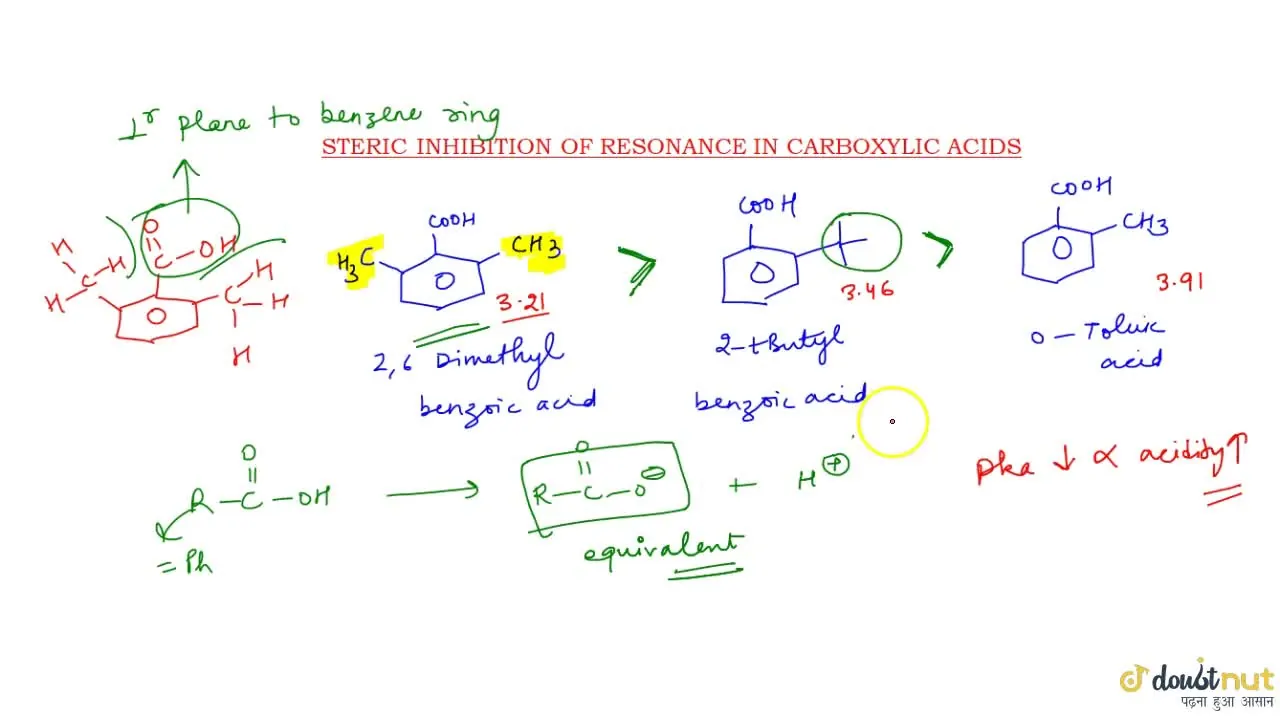 ⊥r plane to benzene ring
STERIC INHIBITION OF RESONANCE IN CARBOXYLIC ACIDS
O
H
H
H
C
C
OH
C
H
H
H
COOH
H3C
CH3
3.21
2,6 Dimethyl
benzoic acid
>
COOH
3.46
2-tButyl
benzoic acid
>
COOH
CH3
3.91
o-Toluic
acid
O
R-C-OH
=Ph
O
R-C-O⊖ + H⊕
equivalent
pka ↓ ∝ acidity ↑
doubtnut
पढ़ना हुआ आसान